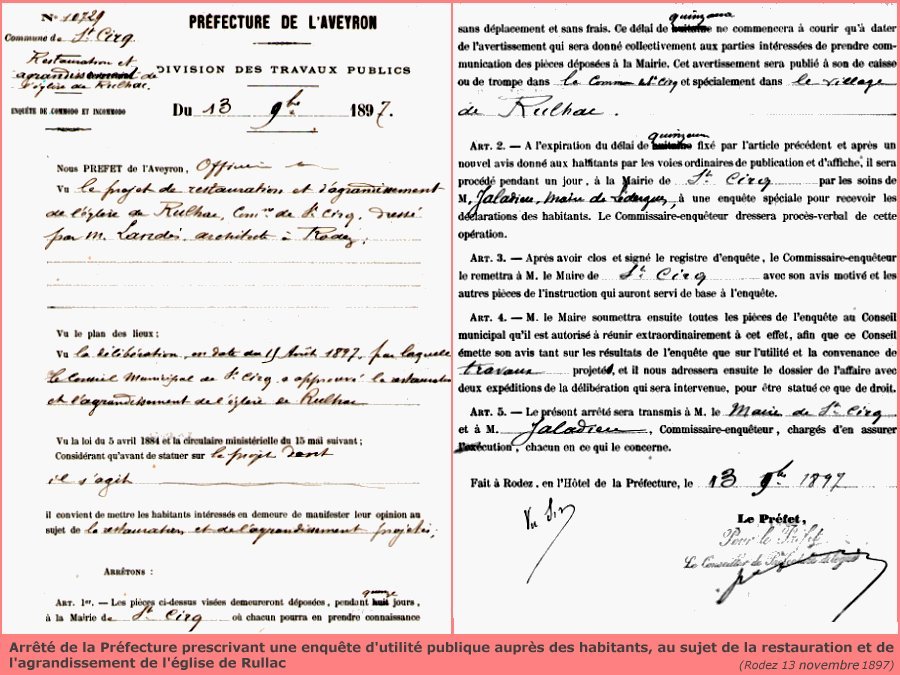 N° 10729
Commune de St Cirq
Restauration et
agrandissement de
l'église de Rulhac.
ENQUÊTE DE COMMODO ET INCOMMODO
PRÉFECTURE DE L'AVEYRON
DIVISION DES TRAVAUX PUBLICS
Du 13 9bre 1897.
Nous PREFET de l'Aveyron, Officier
Vu le projet de restauration et d'agrandissement
de l'église de Rulhac, Comne de St Cirq, dressé
par M. Landès, architecte à Rodez;
Vu le plan des lieux ;
Vu la délibération, en date du 15 Août 1897, par laquelle
le Conseil Municipal de St Cirq a approuvé la restauration
et l'agrandissement de l'église de Rulhac
Vu la loi du 5 avril 1884 et la circulaire ministérielle du 15 mai suivant ;
Considérant qu'avant de statuer sur le projet dont
il s'agit
il convient de mettre les habitants intéressés en demeure de manifester leur opinion au
sujet de la restauration et de l'agrandissement projetés;
ARRÊTONS :
ART. 1er. — Les pièces ci-dessus visées demeureront déposées, pendant huit quinze jours,
à la Mairie de St Cirq où chacun pourra en prendre connaissance
sans déplacement et sans frais. Ce délai de huitaine quinzaine ne commencera à courir qu'à dater
de l'avertissement qui sera donné collectivement aux parties intéressées de prendre com-
munication des pièces déposées à la Mairie. Cet avertissement sera publié à son de caisse
ou de trompe dans la Commune de St Cirq et spécialement dans le village
de Rulhac.
ART. 2. — A l'expiration du délai de huitaine quinzaine fixé par l'article précédent et après un
nouvel avis donné aux habitants par les voies ordinaires de publication et d'affiche, il sera
procédé pendant un jour, à la Mairie de St Cirq par les soins de
M. Jaladieu, Maire de Lédergues, à une enquête spéciale pour recevoir les
déclarations des habitants. Le Commissaire-enquêteur dressera procès-verbal de cette
opération.
ART. 3. — Après avoir clos et signé le registre d'enquête, le Commissaire-enquêteur
le remettra à M. le Maire de St Cirq avec son avis motivé et les
autres pièces de l'instruction qui auront servi de base à l'enquête.
ART. 4. — M. le Maire soumettra ensuite toutes les pièces de l'enquête au Conseil
municipal qu'il est autorisé à réunir extraordinairement à cet effet, afin que ce Conseil
émette son avis tant sur les résultats de l'enquête que sur l'utilité et la convenance de
travaux projetés, et il nous adressera ensuite le dossier de l'affaire avec
deux expéditions de la délibération qui sera intervenue, pour être statué ce que de droit.
ART. 5. — Le présent arrêté sera transmis à M. le Maire de St Cirq
et à M. Jaladieu, Commissaire-enquêteur, chargés d'en assurer
l'exécution, chacun en ce qui le concerne.
Fait à Rodez, en l'Hôtel de la Préfecture, le 13 9bre 1897
Le Préfet,
Pour le Préfet
Le Conseiller de Préfecture délégué
Arrêté de la Préfecture prescrivant une enquête d'utilité publique auprès des habitants, au sujet de la restauration et de
l'agrandissement de l'église de Rullac
(Rodez 13 novembre 1897)